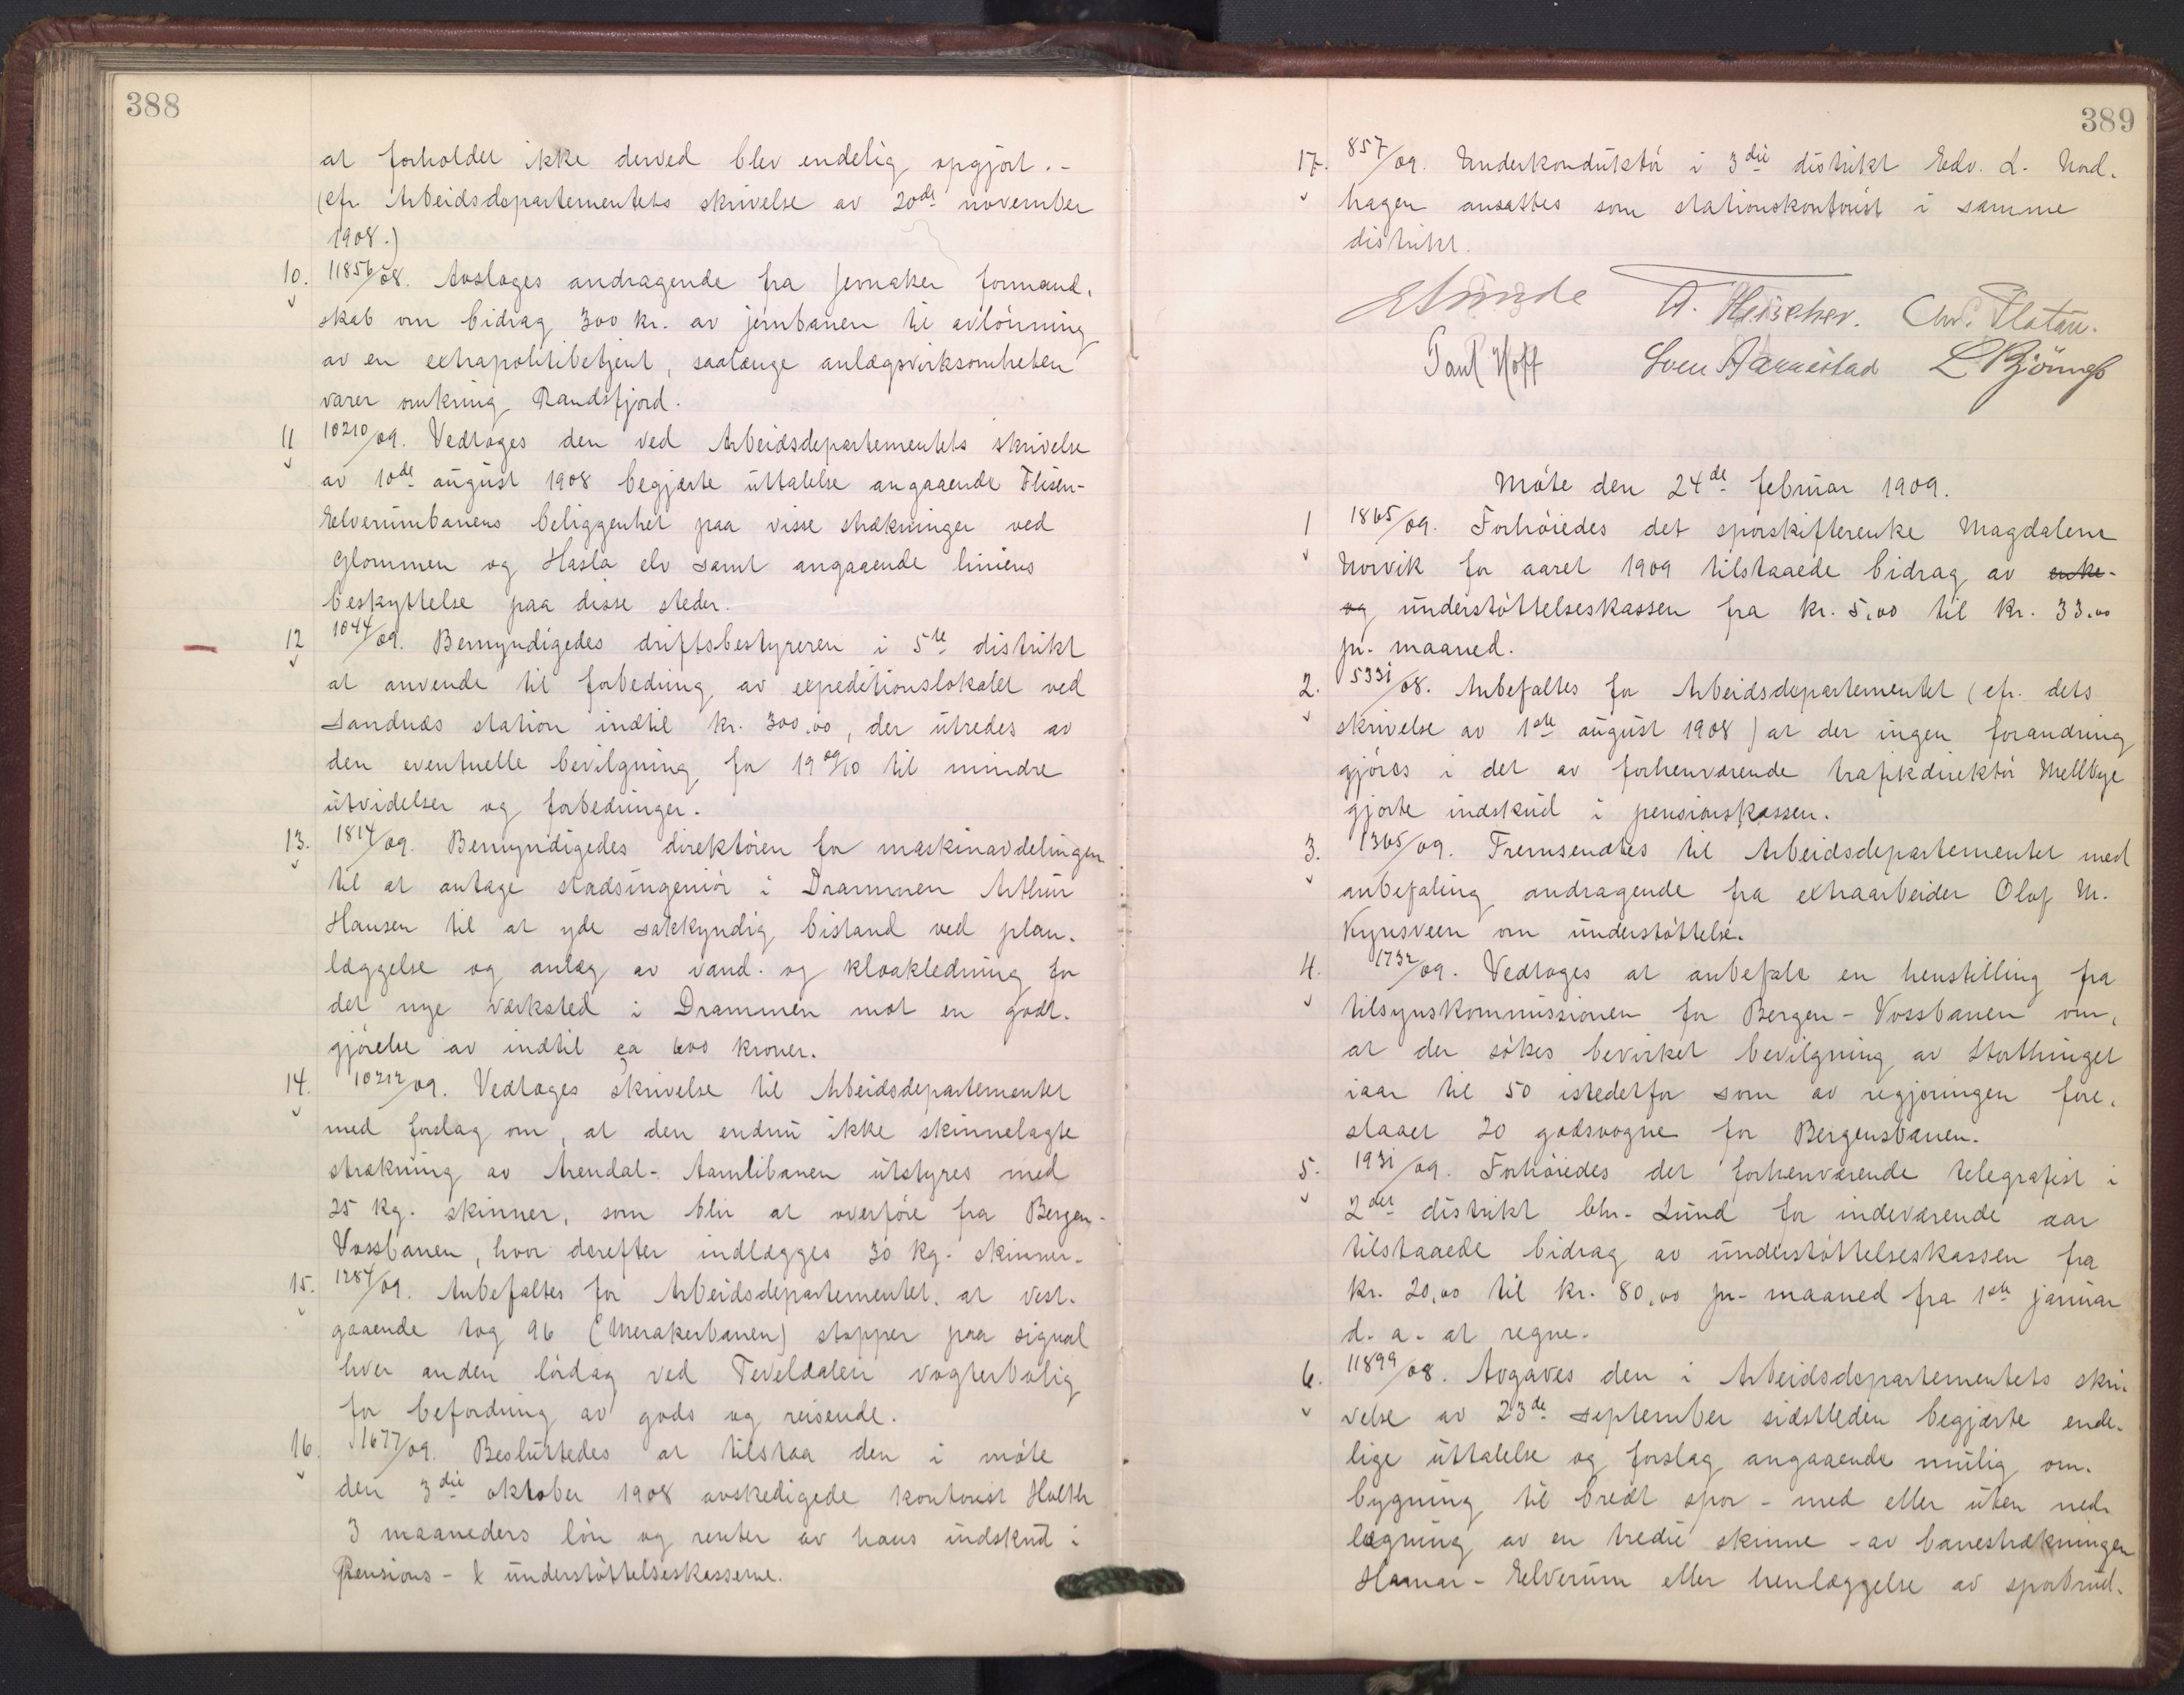 388
at forholdet ikke derved blev endelig opgjört.-
(cfr. Arbeidsdepartementets skrivelse av 20de november
1908.)
10. 11856/08. Avsloges andragende fra Jevnaker formand-
skab om bidrag 300 kr. av jernbanen til avlönning
av en extrapolitibetjent, saalænge anlægsvirksomheten
varer omkring Randsfjord.
11 10210/09. Vedtoges den ved Arbeidsdepartementets skrivelse
av 10de august 1908 begjærte uttalelse angaaende Flisen-
Elverumbanens beliggenhet paa visse strækninger ved
Glommen og Hasla elv samt angaaende liniens
beskyttelse paa disse steder.
12 1044/09. Bemyndigedes driftsbestyreren i 5te distrikt
at anvende til forbedring av expeditionslokalet ved
Sandnæs station indtil kr. 300.00, der utredes av
den eventuelle bevilgning for 1909/10 til mindre
utvidelser og forbedringer.
13. 1814/09. Bemyndigedes direktören for maskinavdelingen
til at antage stadsingeniör i Drammen Arthur
Hansen til at yde sakkyndig bistand ved plan-
læggelse og anlæg av vand- og kloakledning for
det nye verksted i Drammen mot en godt-
gjörelse av indtil ca 600 kroner.
14. 10212/09. Vedtoges skrivelse til Arbeidsdepartementet
med forslag om, at den endnu ikke skinnelagte
strækning av Arendal-Aamlibanen utstyres med
25 kg. skinner, som blir at overföre fra Bergen-
Vossbanen, hvor derefter indlægges 30 kg. skinner.
15. 1284/09. Anbefaltes for Arbeidsdepartementet, at vest-
gaaende tog 96 (Merakerbanen) stopper paa signal
hver anden lördag ved Teveldalen vogterbolig
for befordring av gods og reisende.
16. 1677/09. Besluttedes at tilstaa den i möte
den 3die oktober 1908 avskedigede kontorist Holth
3 maaneders lön og renter av hans indskud i
Pensions- & understöttelseskasserne.
389
17. 857/09. Underkonduktör i 3die distrikt Edv. L. Nord-
hagen ansattes som stationskontorist i samme
distrikt.
A. Fleischer. Chr. Platou.
Paul Hoff Sven Aarrestad
Möte den 24de februar 1909.
1 1865/09. Forhöiedes det sporskifterenke Magdalene
Norvik for aaret 1909 tilstaaede bidrag av enke-
og understöttelseskassen fra kr. 5.00 til kr. 33.00
pr. maaned.
2. 5331/08. Anbefaltes for Arbeidsdepartementet (cfr. dets
skrivelse av 1ste august 1908) at der ingen forandring
gjöres i det av forhenværende trafikdirektör Mellbye
gjorte indskud i pensionskassen.
3. 1365/09. Fremsendtes til Arbeidsdepartementet med
anbefaling andragende fra extraarbeider Olof M.
om understöttelse.
4. 1732/09. Vedtoges at anbefale en henstilling fra
tilsynskommissionen for Bergen-Vossbanen om,
at der sökes bevirket bevilgning av Storthinget
iaar til 50 istedetfor som av regjeringen fore-
slaaet 20 godsvogne for Bergensbanen.
5. 1931/09. Forhöiedes det forhenværende telegrafist i
2det distrikt Chr. Lund for indeværende aar
tilstaaede bidrag av understöttelseskassen fra
kr. 20,00 til kr. 80,00 pr. maaned fra 1ste januar
d. a. at regne.
6. 11899/08. Avgaves den i Arbeidsdepartementets skri-
velse av 23de september sidstleden begjærte ende-
lige uttalelse og forslag angaaende mulig om-
bygning til bredt spor - med eller uten ned-
lægning av en tredie skinne - av banestrækningen
Hamar-Elverum eller henlæggelse av sporbrud-